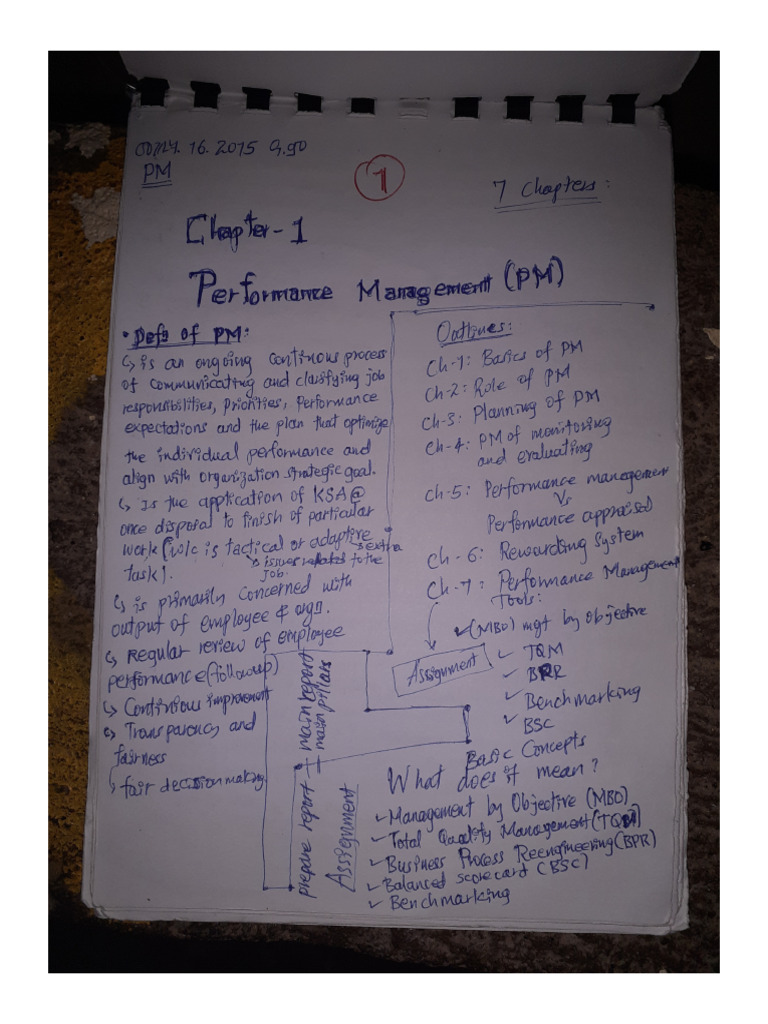 16. 2015
PM
1
7 Chapters:
Chapter - 1
Performance Management (PM)
• Defs of PM:
↳ is an ongoing continous process
of communicating and clarifying job
responsibilities, priorities, Performance
expectations and the plan that optimize
the individual performance and
align with organization strategic goal.
↳ Is the application of KSA@
once disposal to finish of particular
work (wlc is tactical or adaptive
↳ issues related to the
job.
↳ extra
task).
↳ is primarily concerned with
output of employee & orgn.
↳ Regular review of employee
performance (followup)
↳ Continious improvement
↳ Transparency and
fairness
↳ fair decission making
Outlines:
Ch-1: Basics of PM
Ch-2: Role of PM
Ch-3: Planning of PM
Ch-4: PM of monitoring
and evaluating
Ch-5: Performance management
Vs
Performance appraisal
Ch-6: Rewarding System
Ch-7: Performance Management
Tools:
✓ (MBO) mgt by Objective
✓ TQM
✓ BPR
✓ Benchmarking
✓ BSC
Assignment
prepare report + main report
main pillars
Assignment
Basic Concepts
What does it mean?
✓ Management by Objective (MBO)
✓ Total Quality Management (TQM)
✓ Business Process Reengineering (BPR)
✓ Balanced scorecard (BSC)
✓ Benchmarking